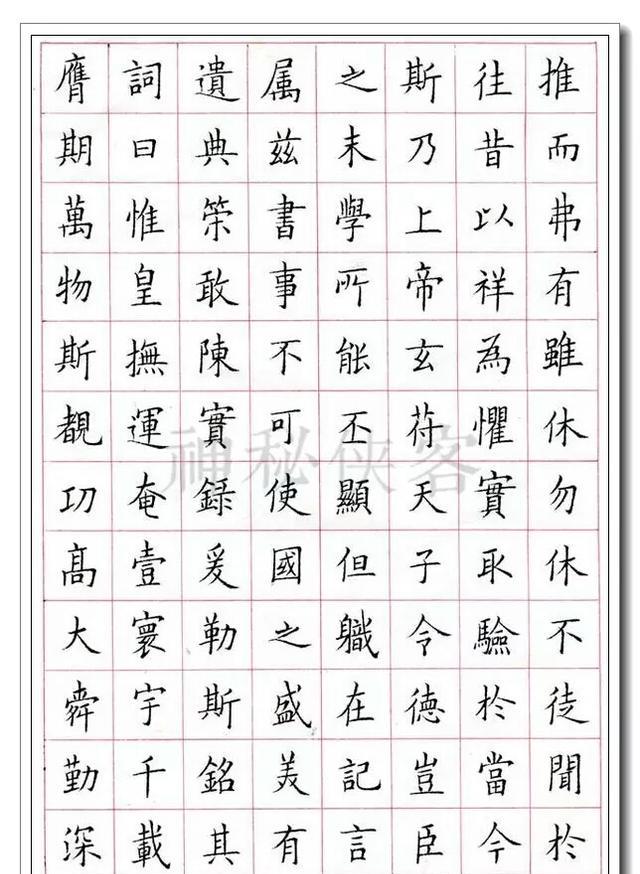 推而弗有雖休勿休不徒聞於
往昔以祥為懼實取驗於當今
斯乃上帝玄苻天子令德豈臣
之末學所能丕顯但職在記言
属兹書事不可使國之盛美有
遺典策敢陳實錄爰勒斯銘其
詞曰惟皇撫運奄壹寰宇千載
膺期萬物斯覩功髙大舜勤深
神秘侠客